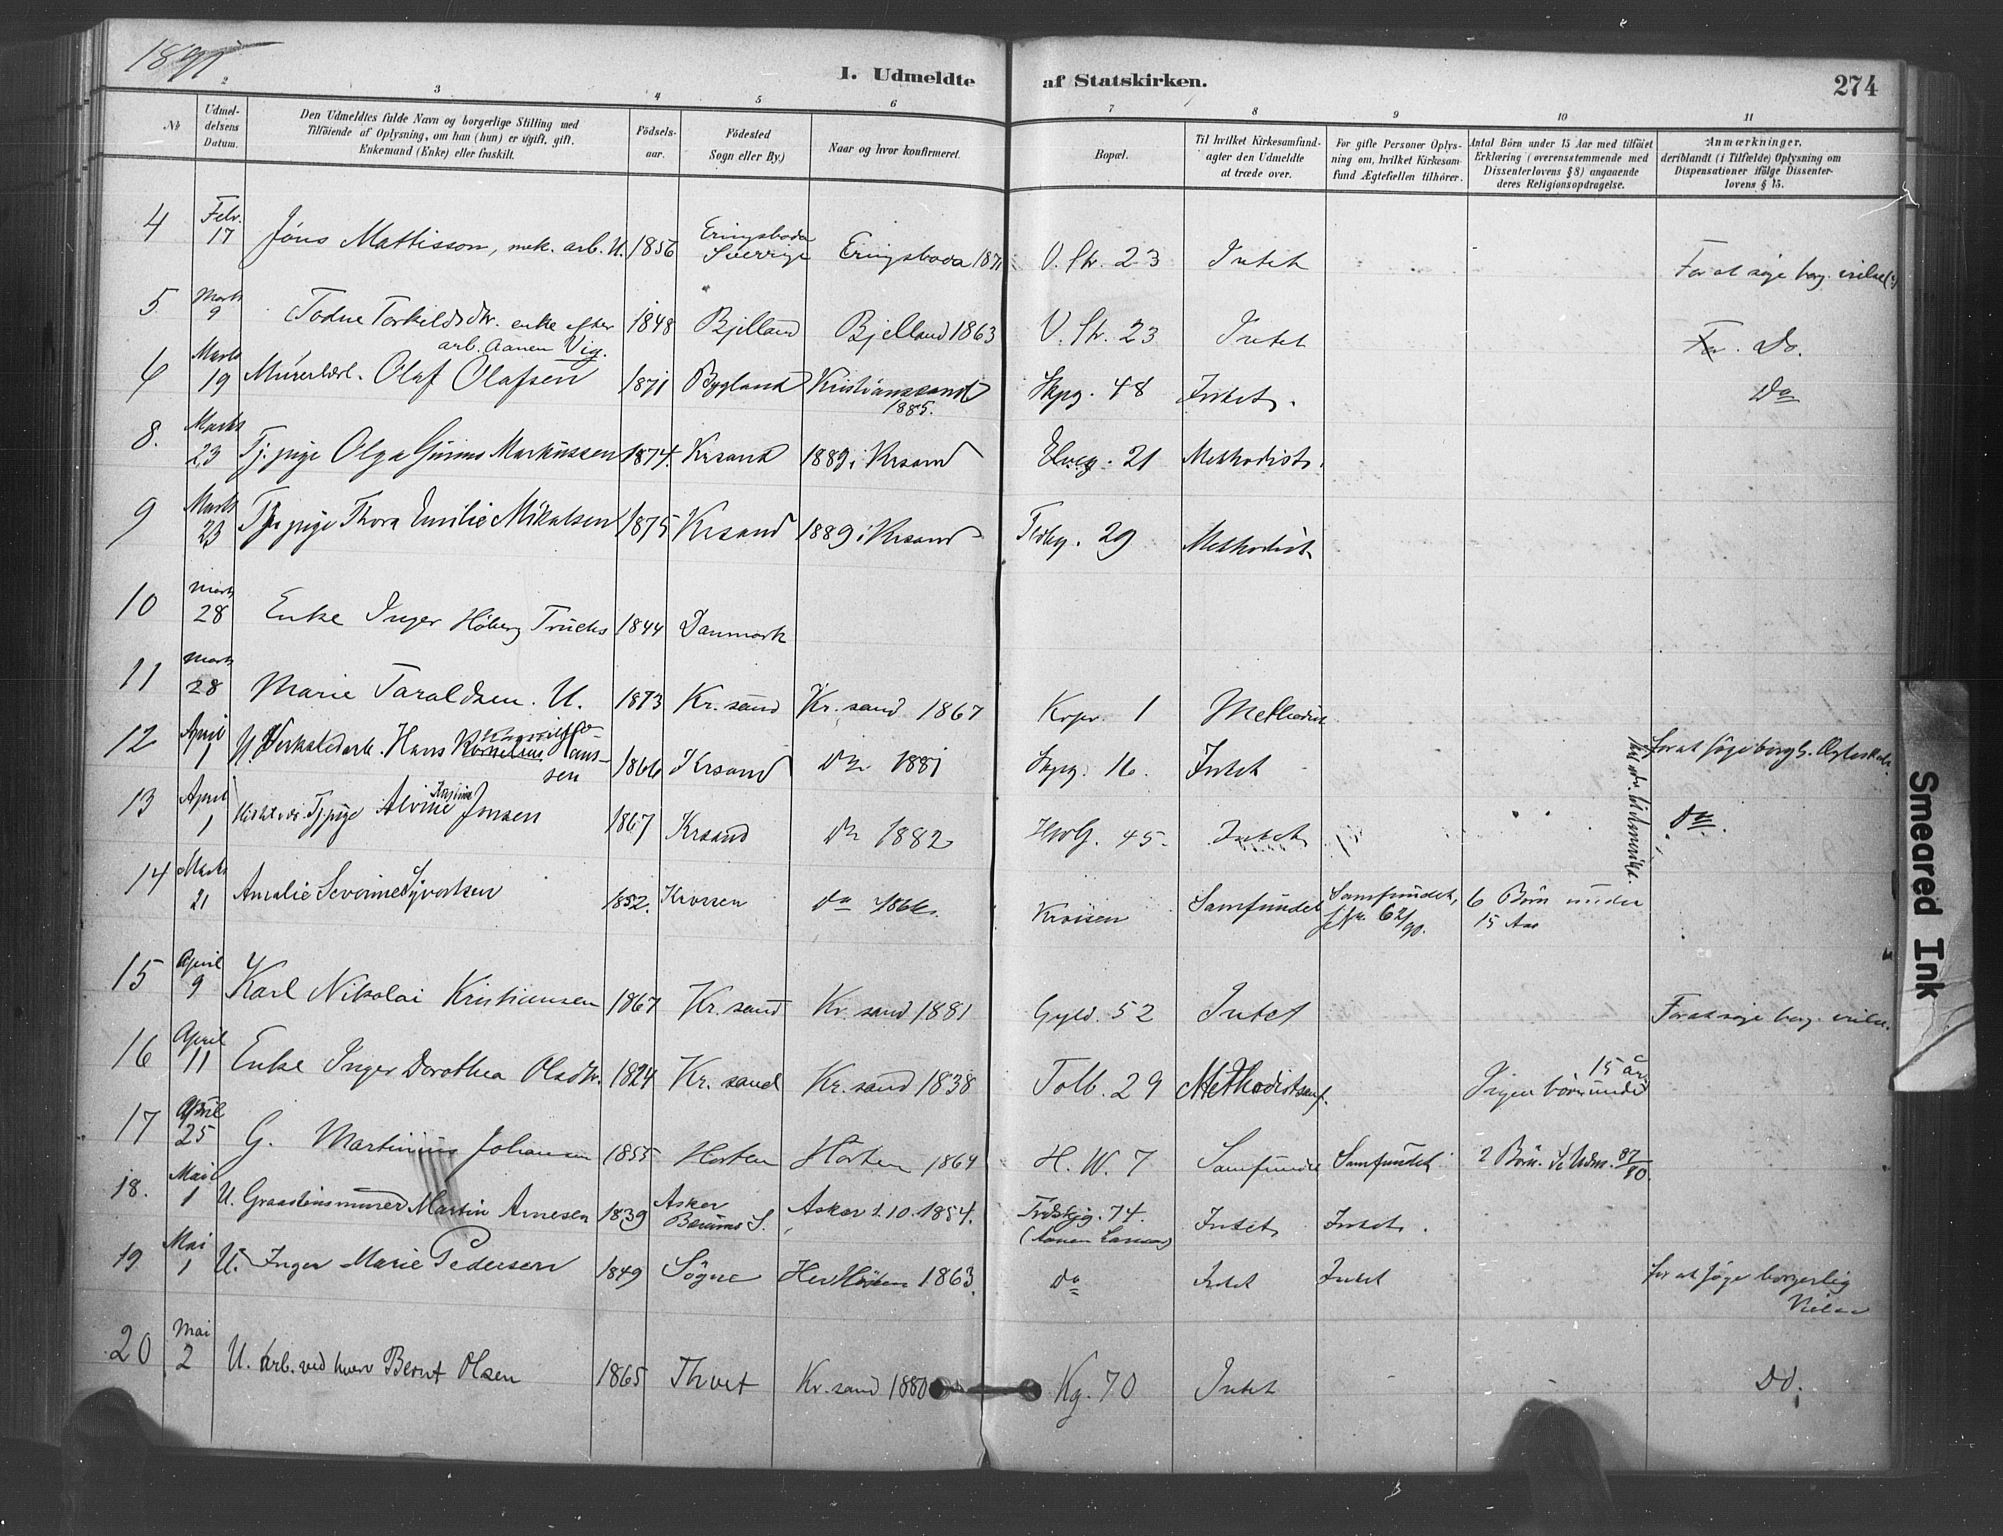 1891
I. Udmeldte af Statskirken.
274
2 3 4 5 6 7 8 9 10 11
Nº
Udmel-
delsens
Datum.
Den Udmeldtes fulde Navn og borgerlige Stilling med
Tilföiende af Oplysning, om han (hun) er ugift, gift.
Enkemand (Enke) eller fraskilt.
Födsels-
aar.
Födested
Sogn eller By.)
Naar og hvor konfirmeret.
Bopæl.
Til hvilket Kirkesamfund-
agter den Udmeldte
at træde over.
For gifte Personer Oplys-
ning om, hvilket Kirkesam-
fund Ægtefællen tilhörer.
Antal Börn under 15 Aar med tilföiet
Erklæring (overensstemmende med
Dissenterlovens § 8) angaaende
deres Religionsopdragelse.
Anmærkninger,
deriblandt (i Tilfælde) Oplysning om
Dispensationer ifölge Dissenter-
lovens § 15.
4 Febr. 17 Jöns Mattisson, mek. arb. U. 1856 Eringsboda Sverrige Eringsboda 1871 V. Str. 23 Intet For at söge borg. vielse
5 Marts 9 Todne Torkildsdtr. enke efter arb. Aanen Vig. 1848 Bjelland Bjelland 1863 V. Str. 23 Intet Do.
6 Marts 19 Murerlærl. Olaf Olafsen 1871 Bygland Kristianssand 1885. Skpg. 48 Intet. Do
8. Marts 23 Tj. pige Olga Markussen 1874. Krsand 1889 i Krsand Elveg. 21 Methodist.
9 Marts 23 Tj. pige Thora Emilie Mikalsen 1875 Krsand 1889 i Krsand 29 Methodist
10 Marts 28 Enke Inger Höberg 1844 Danmark
11 Marts 28 Marie Taraldsen. U. 1873 Kr. sand Kr. sand 1867 1 Methodist
12 April 1 Verkstedarb. Hans Hans-
sen 1866 Krsand Do 1881 Skpg. 16. Intet For at söge borgl. Ægteskab.
13 April 1 Tj. pige Alvine Jensen 1867 Krsand Do 1882 Holg. 45 Intet Do.
14 Marts 21 Amalie Severine Syvertsen 1852. Krossen do 1866. Krossen Samfundet Samfundet, 62/90. 6 Börn under
15 Aar
15 April 9 Karl Nikolai Kristiansen 1867 Kr. sand Kr. sand 1881 Gyld. 52 Intet For at söge borg. vielse.
16 April 11 Enke Inger Dorothea Olsdtr. 1824 Kr. sand Kr. sand 1838 Tolb. 29 Methodistsamf. Ingen börn under 15 år
17 April 25 G. Martinius Johansen 1855 Horten Horten 1864 H. W. 7 Samfundet Samfundet 2 Börn. 87/90.
18. Mai 1 U. Graastensmurer Martin Arnesen 1839 Asker Bærums S. Asker 1.10.1854. 74. (Aanen Larsen) Intet Intet.
19 Mai 1 U. Inger Marie Pedersen 1849 Sögne 1863. Do Intet Intet For at söge borgerlig
Vielse
20 Mai 2 U. Arb. ved hvav Bernt Olsen 1865 Thvet Kr. sand 1880 Kg. 70 Intet Do.
Smeared Ink